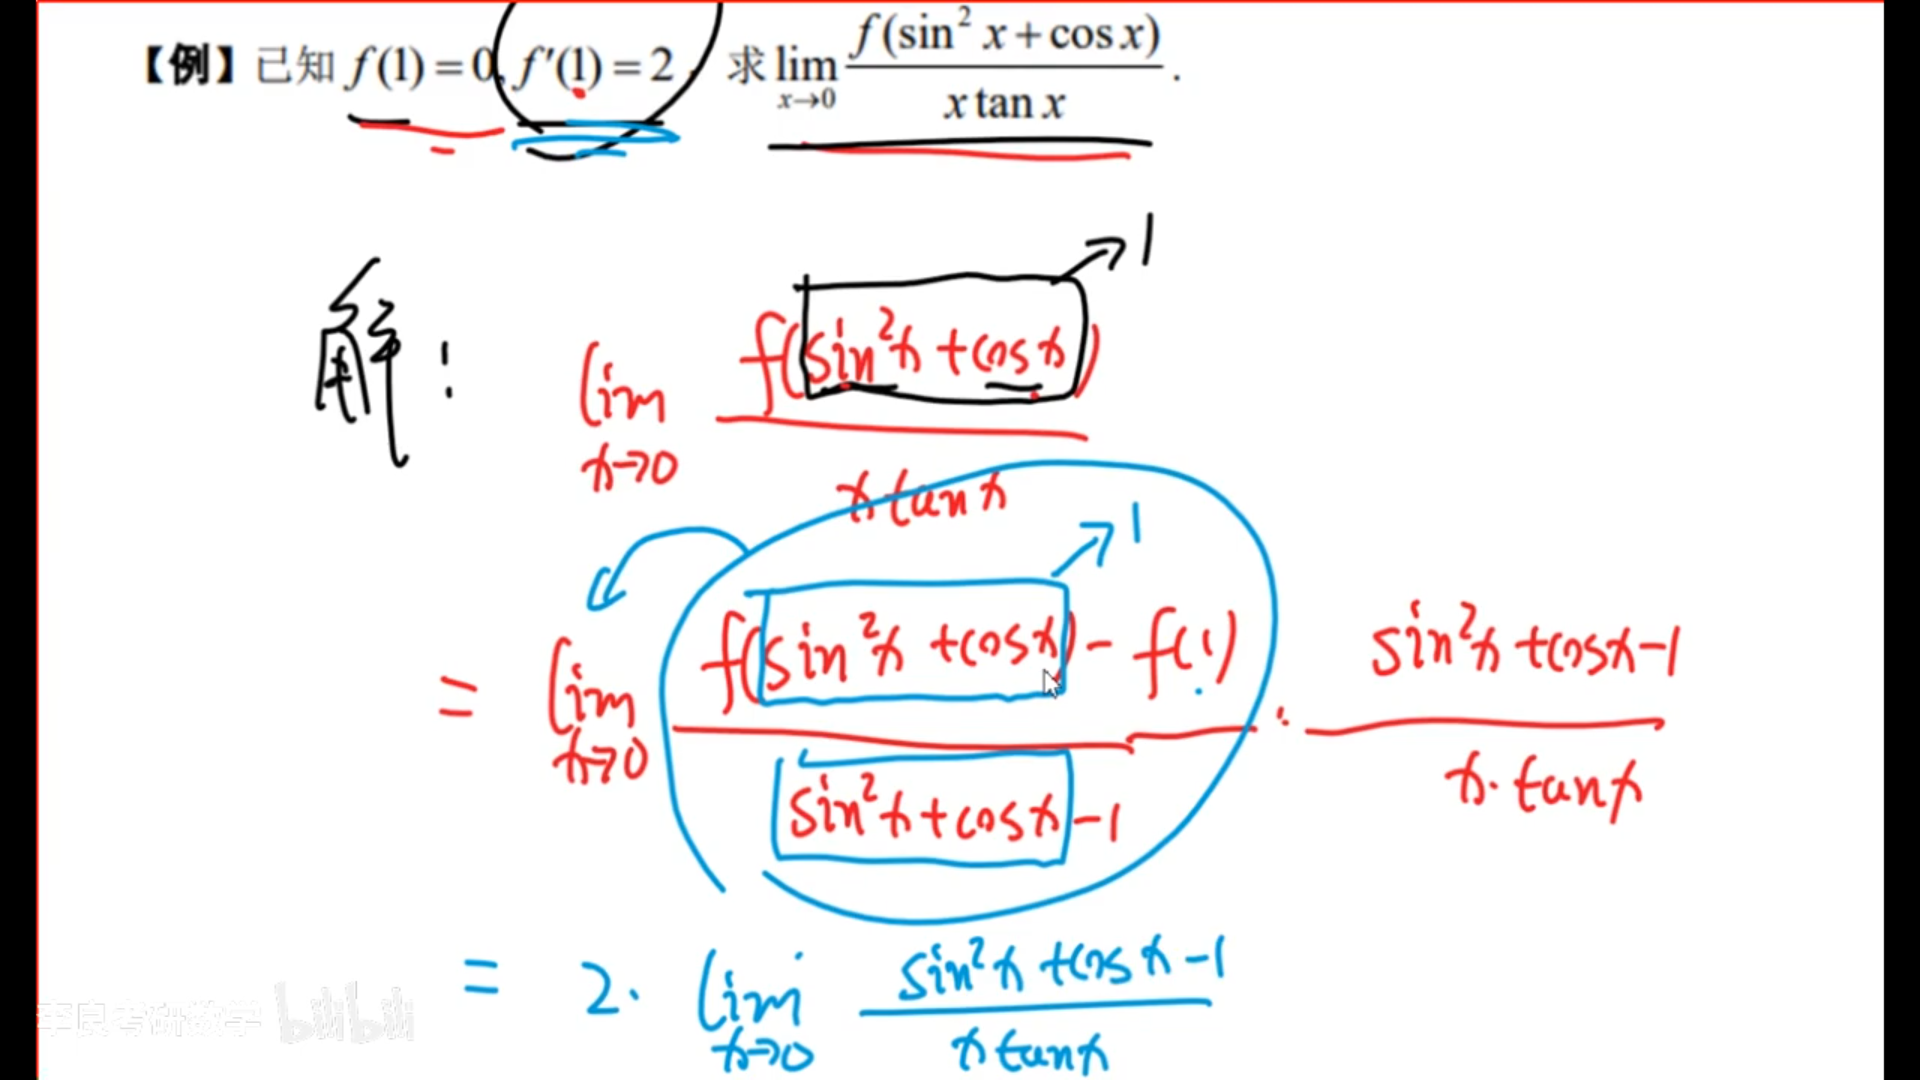 【例】已知 f(1) = 0, f′(1) = 2, 求 lim x→0 f(sin² x + cos x) / x tan x .
解: lim x→0 f(sin²x + cos x) / x tan x → 1
= lim x→0 f(sin²x + cos x) - f(1) / sin²x + cos x - 1 · sin²x + cos x - 1 / x · tan x → 1
= 2 · lim x→0 sin²x + cos x - 1 / x tan x
李良考研数学 bilibili